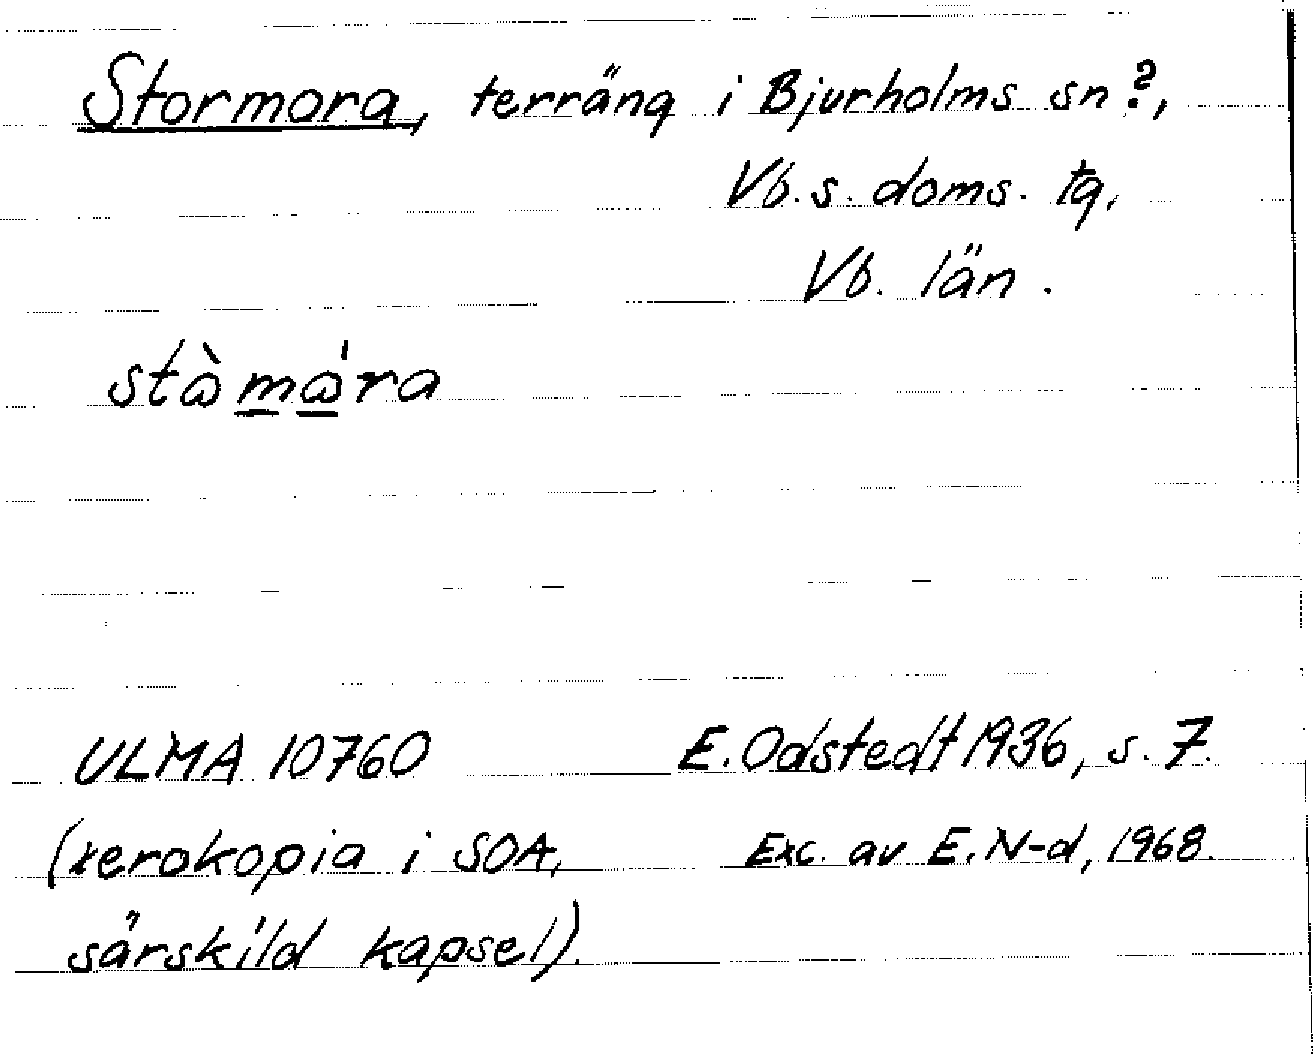 Stormora, terräng i Bjurholms sn?,
Vb. s. doms. tg,
Vb. län.
ULMA 10760 E. Odstedt 1936, s. 7.
(xerokopia i SOA, Exc. av E. N-d, 1968.
särskild kapsel).